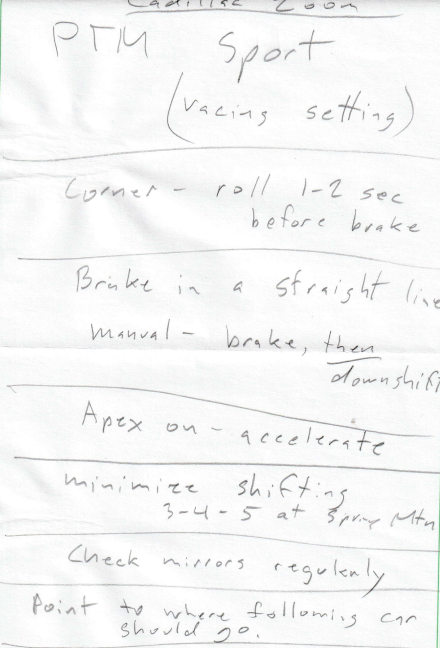 Cadillac Zoom
PTM Sport
(racing setting)
Corner - roll 1-2 sec
before brake
Brake in a straight line
manual - brake, then
downshift
Apex on - accelerate
minimize shifting
3-4-5 at Spring Mtn
Check mirrors regularly
Point to where following car
should go.